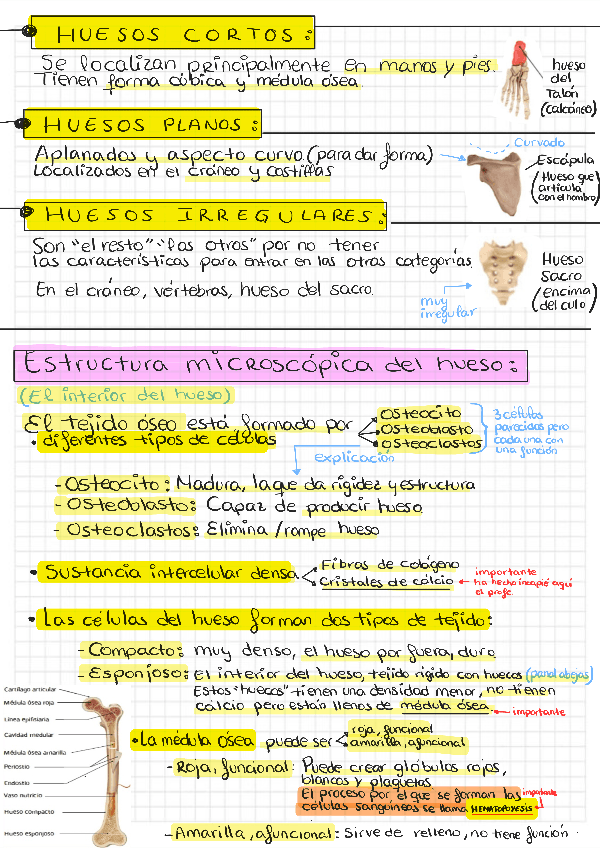 HUESOS CORTOS:
Se localizan principalmente en manos y pies.
Tienen forma cúbica y médula ósea.
hueso
del
Talón
(calcáneo)
HUESOS PLANOS:
Aplanados y aspecto curvo. (para dar forma)
Localizados en el cráneo y costillas
Curvado
Escápula
(Hueso que
articula
con el hombro)
HUESOS IRREGULARES:
Son "el resto" "los otros" por no tener
las características para entrar en las otras categorías.
En el cráneo, vértebras, hueso del sacro.
muy
irregular
Hueso
Sacro
(encima
del culo)
Estructura microscópica del hueso:
(El interior del hueso)
El tejido óseo está formado por
• diferentes tipos de células
Osteocito
Osteoblasto
osteoclastos
3 células
parecidas pero
cada una con
una función
explicación
- Osteocito: Madura, la que da rigidez y estructura
- Osteoblasto: Capaz de producir hueso
- Osteoclastos: Elimina / rompe hueso
• Sustancia intercelular densa
Fibras de colágeno
Cristales de calcio
importante
ha hecho incapié aquí
el profe.
• Las células del hueso forman dos tipos de tejido:
- Compacto: muy denso, el hueso por fuera, duro
- Esponjoso: el interior del hueso, tejido rígido con huecos (panal abejas)
Estos "huecos" tienen una densidad menor, no tienen
calcio pero están llenos de médula ósea.
importante
Cartílago articular
Médula ósea roja
Línea epifisiaria
Cavidad medular
Médula ósea amarilla
Periostio
Endostio
Vaso nutricio
Hueso compacto
Hueso esponjoso
• La médula ósea puede ser
roja, funcional
amarilla, afuncional
- Roja, funcional: Puede crear glóbulos rojos,
blancos y plaquetas
El proceso por el que se forman las
células sanguíneas se llama HEMATOPOYESIS
importante
- Amarilla, afuncional: Sirve de relleno, no tiene función.